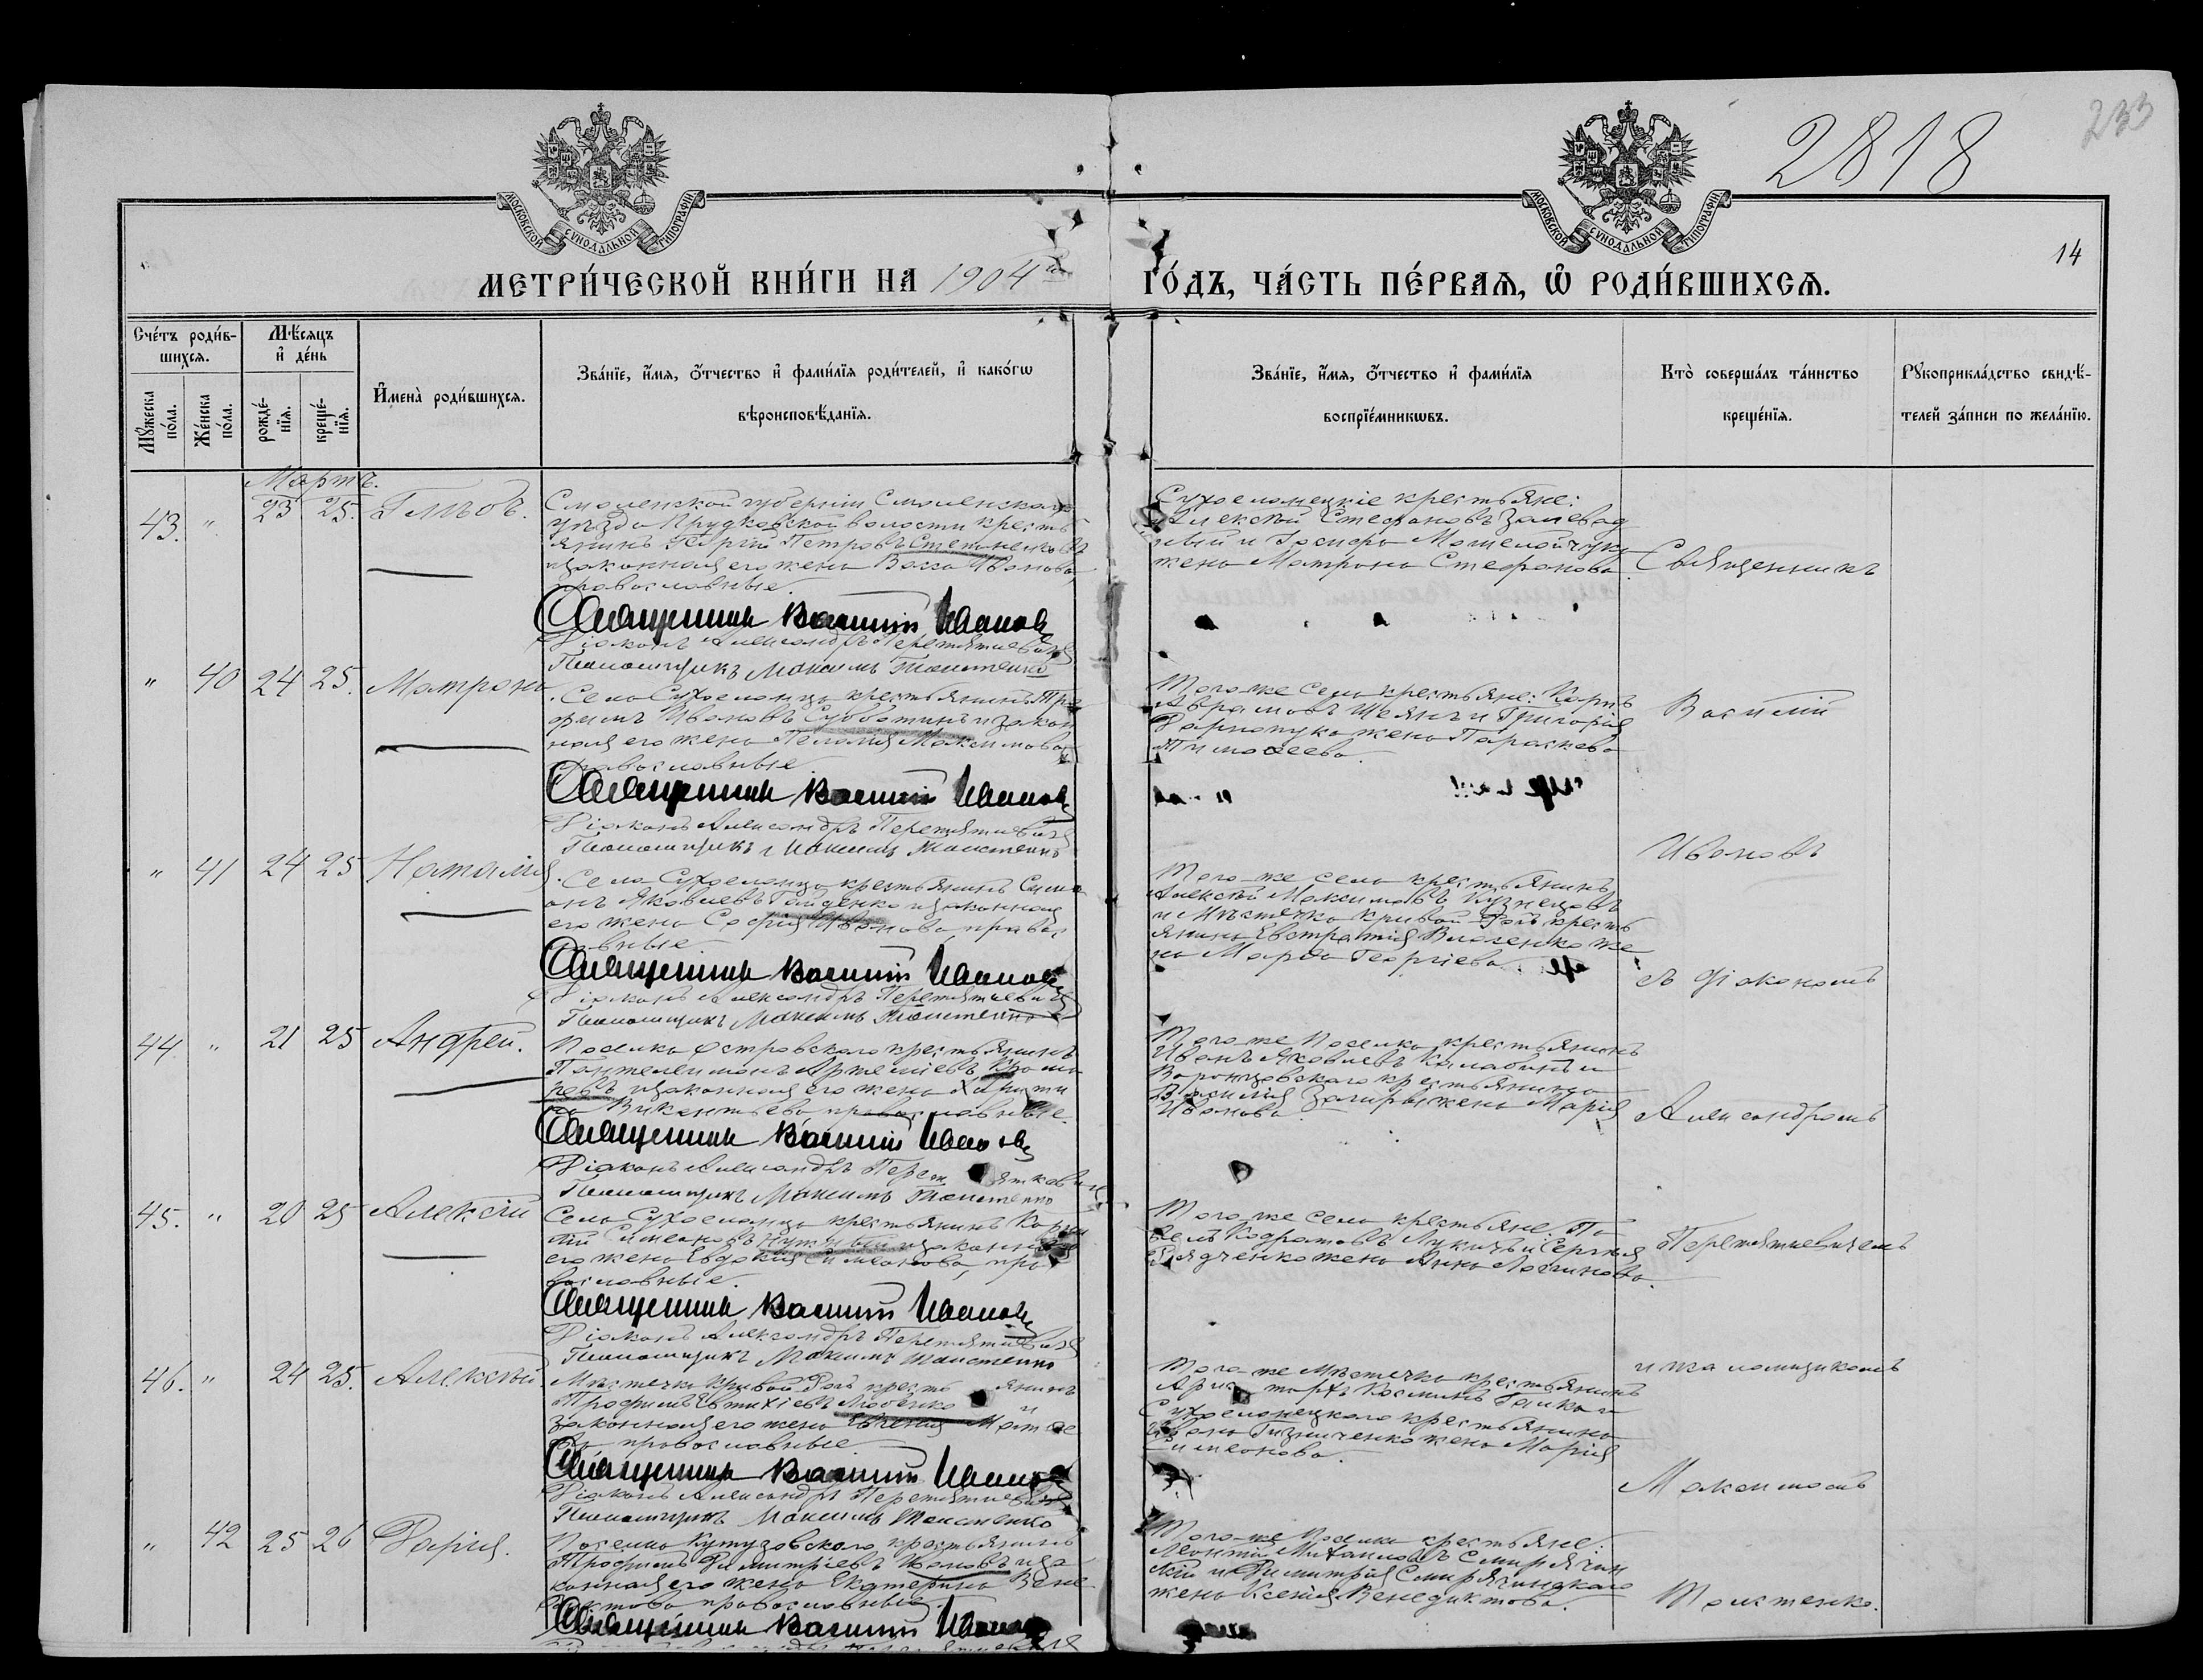 2818
233
МОСКОВСКОЙ СѴНОДАЛЬНОЙ ТИПОГРАФІИ
МОСКОВСКОЙ СѴНОДАЛЬНОЙ ТИПОГРАФІИ
14
МЕТРИ́ЧЕСКОЙ КНИ́ГИ НА 1904й
ГО́ДЪ, ЧА́СТЬ ПЕ́РВАЯ, Ѽ РОДИ́ВШИХСЯ.
Сче́тъ роди́в-
шихся.
Мѣ́сяцъ
и҆ де́нь
Мꙋ́жеска
по́ла.
Же́нска
по́ла.
рожде́-
нїѧ.
креще́-
нїѧ.
И҆мена̀ роди́вшихся.
Зва́нїе, и҆́мѧ, ѻ҆́тчество и҆ фами́лїѧ роди́телей, и҆ како́гѡ
вѣроисповѣ́данїѧ.
Зва́нїе, и҆́мѧ, ѻ҆́тчество и҆ фами́лїѧ
воспрїе́мникѡвъ.
Кто̀ соверша́лъ та́инство
креще́нїѧ.
Рꙋкоприкла́дство свидѣ́-
телей за́писи по жела́нїю.
Мартъ.
43. " 23 25. Глѣбъ.
Смоленской губерніи Смоленскаго
уѣзда Прудковской волости кресть
янинъ Георгій Петровъ Степаненковъ
и законная его жена Васса Иванова
православные.
Священникъ Василій Ивановъ
Діаконъ Александръ Перетятковичъ
Псаломщикъ Максимъ Толстенко
Сухоеланецкіе крестьяне:
Алексѣй Стефановъ
жена Матрона Стефанова.
Священникъ
" 40 24 25. Матрона
Села Сухоеланца крестьянинъ Тро
фимъ Ивановъ Субботинъ и закон
ная его жена Пелагія Максимова
православные.
Священникъ Василій Ивановъ
Діаконъ Александръ Перетятковичъ
Псаломщикъ Максимъ Толстенко
Того-же села крестьяне: Карпъ
Аврамовъ и Григорія
жена Параскева
Тимоѳеева.
Василій
" 41 24 25 Наталія
Села Сухоеланца крестьянинъ Симе
онъ Яковлевъ Гайденко и законная
его жена Софія Иванова, правос
лавные.
Священникъ Василій Ивановъ
Діаконъ Александръ Перетятковичъ
Псаломщикъ Максимъ Толстенко
Того-же села крестьянинъ
Алексѣй Максимовъ Кузнецовъ
и мѣстечка Кривой-Рогъ кресть
янина Евстратія Власенко же
на Марѳа Георгіева.
Ивановъ
съ діакономъ
44. " 21 25 Андрей.
Поселка Островскаго крестьянинъ
Пантелеимонъ Артеміевъ
и законная его жена Харити
на Викентьева православные.
Священникъ Василій Ивановъ
Діаконъ Александръ Перетятковичъ
Псаломщикъ Максимъ Толстенко
Того-же поселка крестьянинъ
Иванъ Яковлевъ и
Воронцовскаго крестьянина
Василія жена Марія
Иванова.
Александромъ
45. " 20 25 Алексѣй
Села Сухоеланца крестьянинъ
Симеоновъ Нужный и законная
его жена Евдокія Симеонова, пра
вославные.
Священникъ Василій Ивановъ
Діаконъ Александръ Перетятковичъ
Псаломщикъ Максимъ Толстенко
Того-же села крестьяне: Па
велъ Кодратовъ и Сергія
жена Анна Логгинова.
Перетятковичемъ
46. " 24 25. Алексѣй
Мѣстечка Кривой-Рогъ крестьянинъ
Трофимъ Евтихіевъ и
законная его жена Евгенія Матѳе
ева православные.
Священникъ Василій Ивановъ
Діаконъ Александръ Перетятковичъ
Псаломщикъ Максимъ Толстенко
Того-же мѣстечка крестьянинъ
Аристархъ Косминъ и
Сухоеланецкаго крестьянина
Ивана жена Марія
Симеонова.
и псаломщикомъ
Максимомъ
" 42 25 26 Дарія.
Поселка Кутузовскаго крестьянинъ
Трофимъ Димитріевъ и за
конная его жена Екатерина Вене
диктова православные.
Священникъ Василій Ивановъ
Того-же поселка крестьяне:
Леонтій Михаиловъ Смирягин
скій и Димитрія Смирягинскаго
жена Ксенія Венедиктова.
Толстенко.